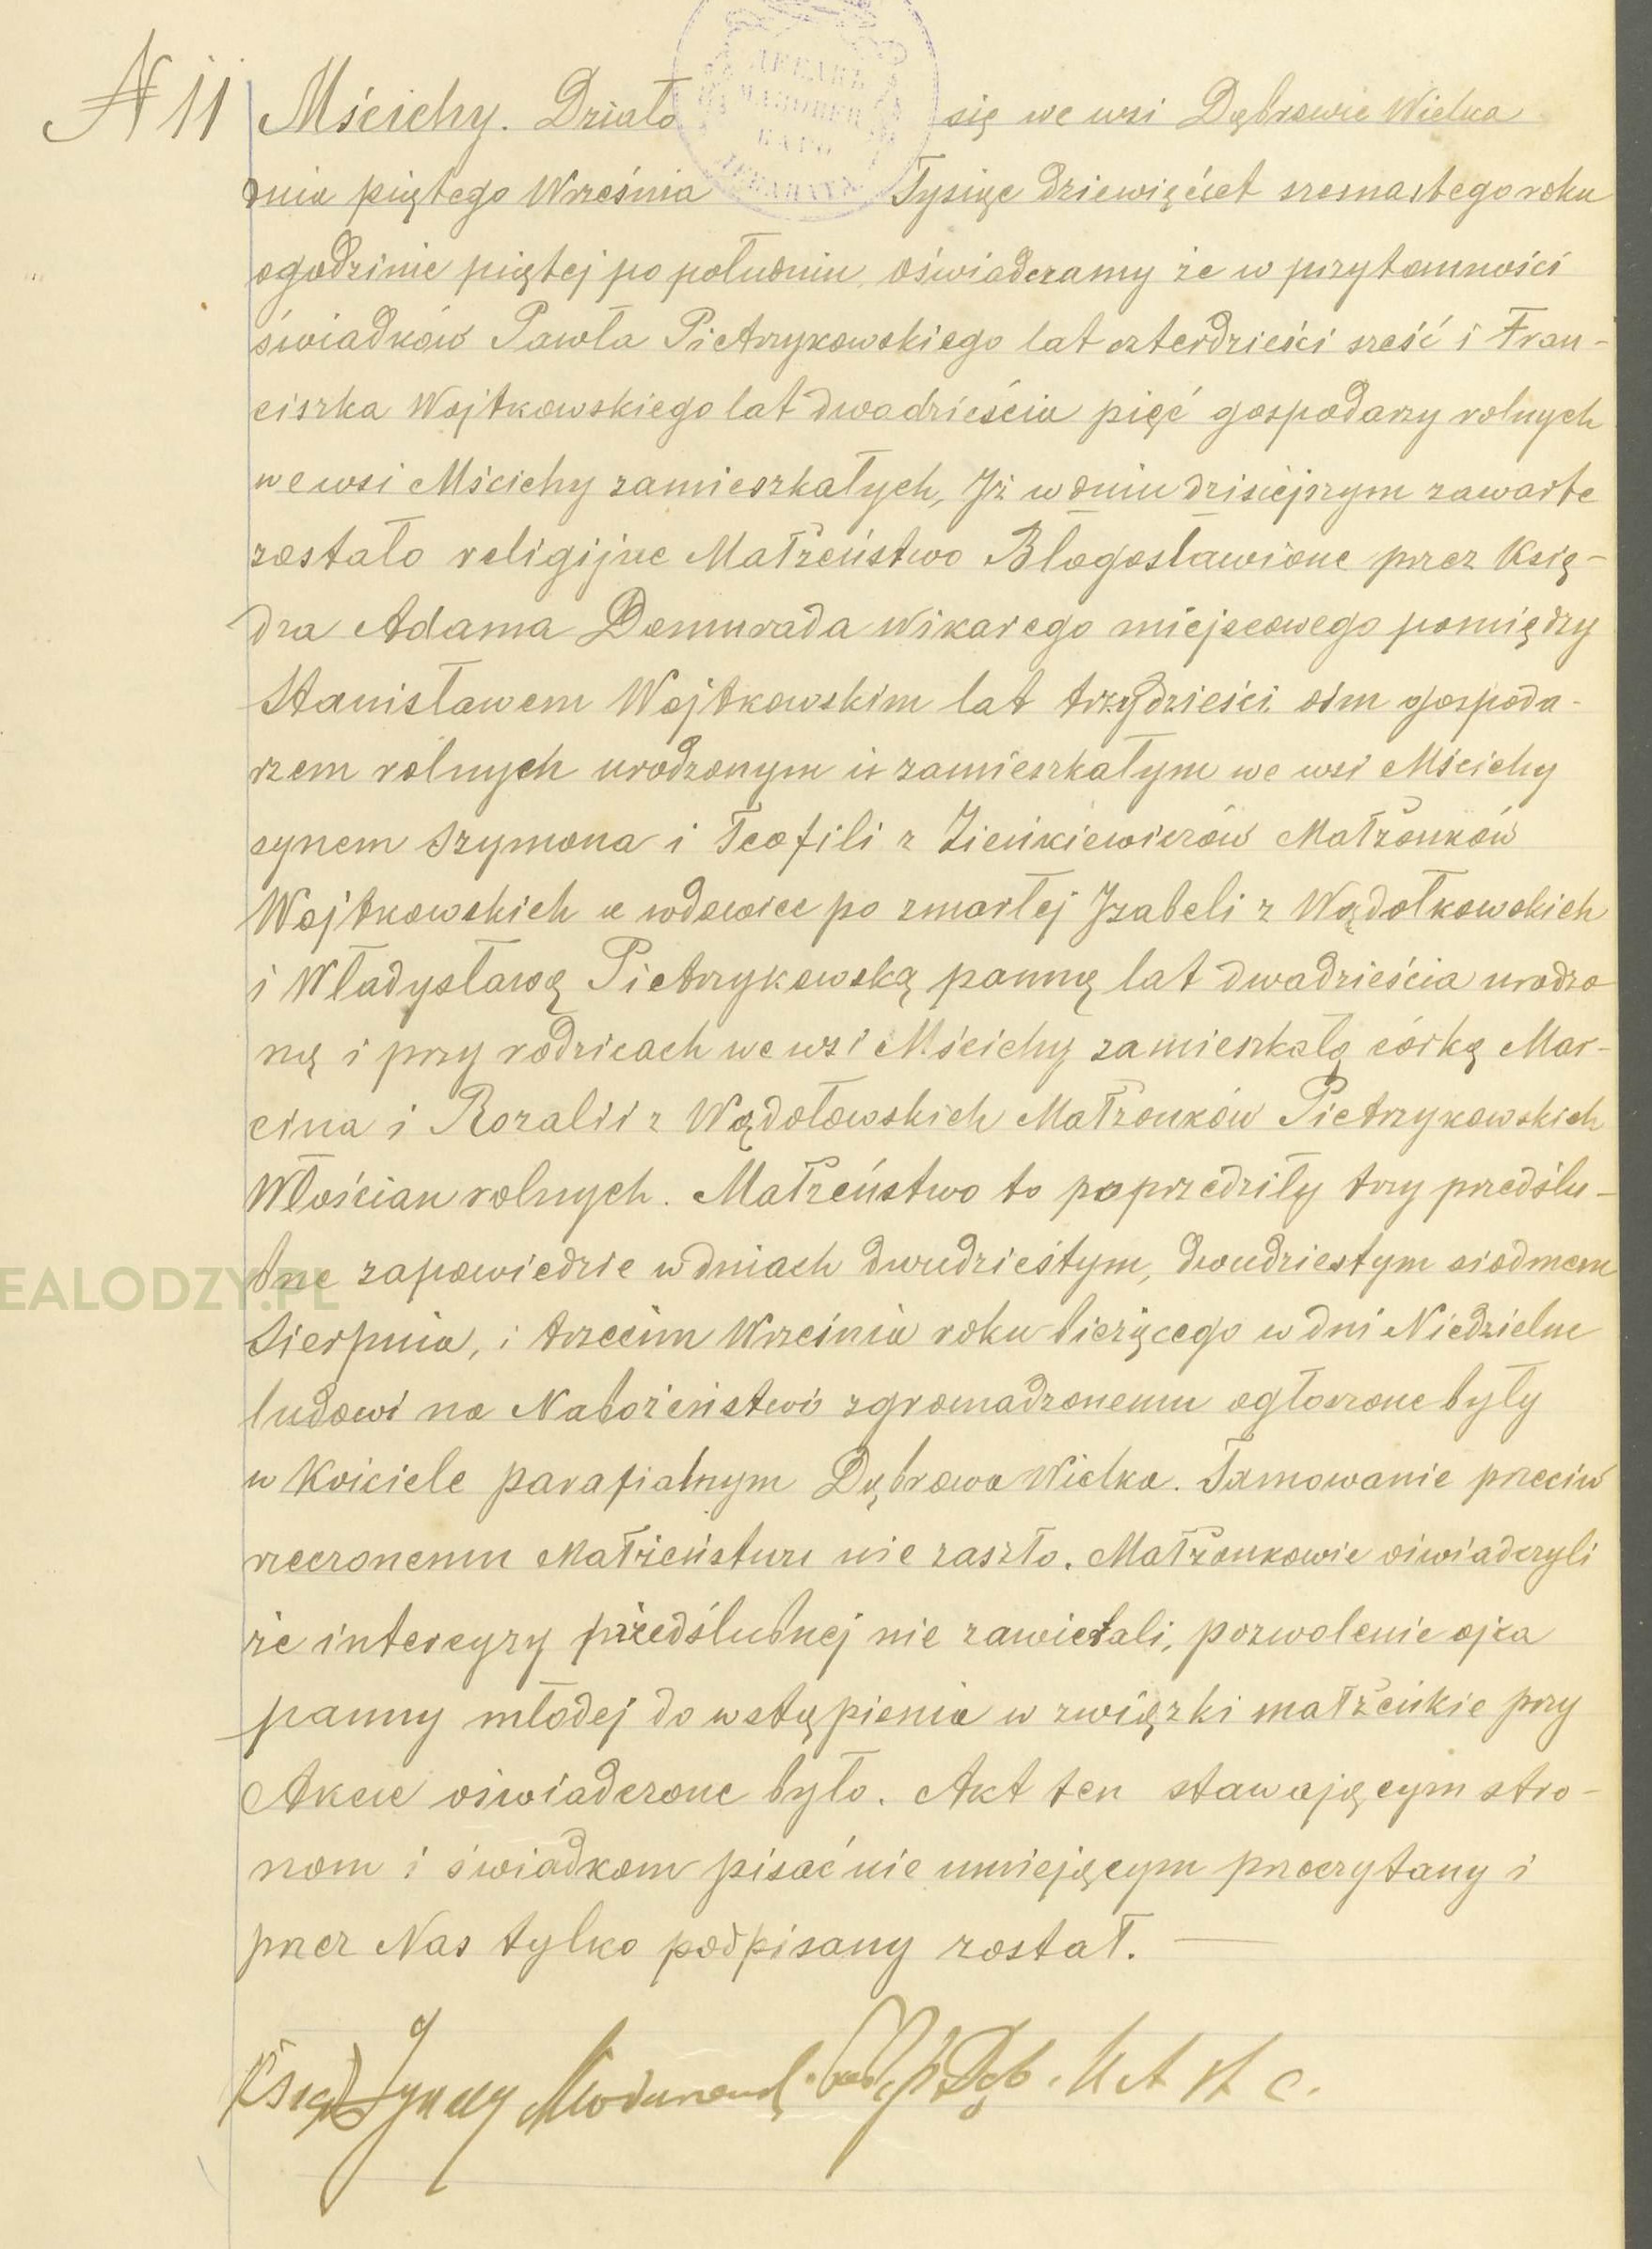 N 11 Mścichy. Działo się we wsi Dąbrowie Wielka
dnia piątego Września Tysiąc dziewięćset szesnastego roku
ogodzinie piątej po południu, oświadczamy że w przytomności
świadków Pawła Pietrzykowskiego lat czterdzieści sześć i Fran-
ciszka Wojtkowskiego lat dwadzieścia pięć gospodarzy rolnych
we wsi Mścichy zamieszkałych, Jż w dniu dzisiejszym zawarte
zostało religijne Małżeństwo Błogosławione przez Księ-
dza Adama Domurada Wikarego miejscowego pomiędzy
Stanisławem Wojtkowskim lat trzydzieści ośm gospoda-
rzem rolnych urodzonym i zamieszkałym we wsi Mścichy
synem Szymona i Teofili z Zieńkiewiczów Małżonków
Wojtkowskich a wdowiec po zmarłej Jzabeli z Wądołkowskich
i Władysławą Pietrzykowską panną lat dwadzieścia urodzo
ną i przy rodzicach we wsi Mścichy zamieszkałą córką Mar-
cina i Rozalii z Wądołowskich Małżonków Pietrzykowskich
Włościan rolnych. Małżeństwo to poprzedziły trzy przedślu-
bne zapowiedzie w dniach dwudziestym, dwudziestym siódmem
Sierpnia, i trzecim Września roku bieżącego w dni Niedzielne
ludowi na Nabożeństwo zgromadzonemu ogłoszone były
w Kościele parafialnym Dąbrowa Wielka. Tamowanie przeciw
rzeczonemu Małżeństwu nie zaszło. Małżonkowie oświadczyli
że intercyzy przedślubnej nie zawierali, pozwolenie ojca
panny młodej do wstąpienia w związki małżeńkie przy
Akcie oświadczone było. Akt ten stawającym stro-
nom i świadkom pisać nie umiejącym przeczytany i
przez Nas tylko podpisany został.
Ksiądz Jgnacy
EALODZY.PL